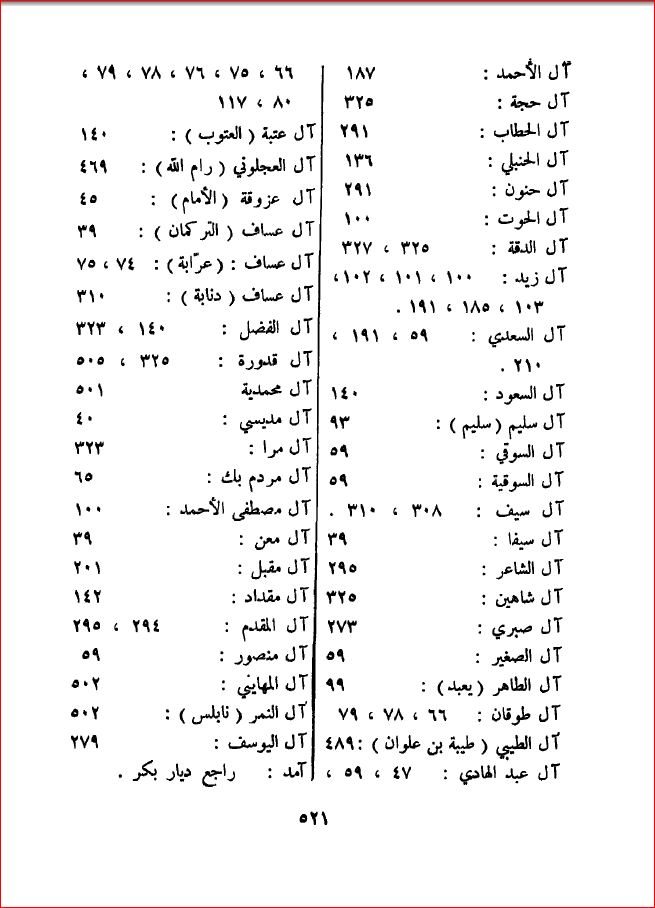 آل الأحمد : ١٨٧
آل حجة : ٣٢٥
آل الحطاب : ٢٩١
آل الحنبلي : ١٣٦
آل حنون : ٢٩١
آل الحوت : ١٠٠
آل الدقة : ٣٢٥ ، ٣٢٧
آل زيد : ١٠٠ ، ١٠١ ، ١٠٢،
١٠٣ ، ١٨٥ ، ١٩١ .
آل السعدي : ٥٩ ، ١٩١ ،
٢١٠ .
آل السعود : ١٤٠
آل سليم ( سليم ) : ٩٣
آل السوقي : ٥٩
آل السوقية : ٥٩
آل سيف : ٣٠٨ ، ٣١٠ .
آل سيفا : ٣٩
آل الشاعر : ٢٩٥
آل شاهين : ٣٢٥
آل صبري : ٢٧٣
آل الصغير : ٥٩
آل الطاهر ( يعبد ) : ٩٩
آل طوقان : ٦٦ ، ٧٨ ، ٧٩
آل الطيبي ( طيبة بن علوان ) : ٤٨٩
آل عبد الهادي : ٤٧ ، ٥٩ ،
٦٦ ، ٧٥ ، ٧٦ ، ٧٨ ، ٧٩ ،
٨٠ ، ١١٧
آل عتبة ( العتوب ) : ١٤٠
آل العجلوني ( رام الله ) : ٤٦٩
آل عزوقة ( الأمام ) : ٤٥
آل عساف ( التركمان ) : ٣٩
آل عساف : ( عرّابة ) : ٧٤ ، ٧٥
آل عساف ( دنابة ) : ٣١٠
آل الفضل : ١٤٠ ، ٣٢٣
آل قدورة : ٣٢٥ ، ٥٠٥
آل محمدية ٥٠١
آل مديسي : ٤٠
آل مرا : ٣٢٣
آل مردم بك : ٦٥
آل مصطفى الأحمد : ١٠٠
آل معن : ٣٩
آل مقبل : ٢٠١
آل مقداد : ١٤٢
آل المقدم : ٢٩٤ ، ٢٩٥
آل منصور : ٥٩
آل المهايني : ٥٠٢
آل النمر ( نابلس ) : ٥٠٢
آل اليوسف : ٢٧٩
آمد : راجع ديار بكر .
٥٢١